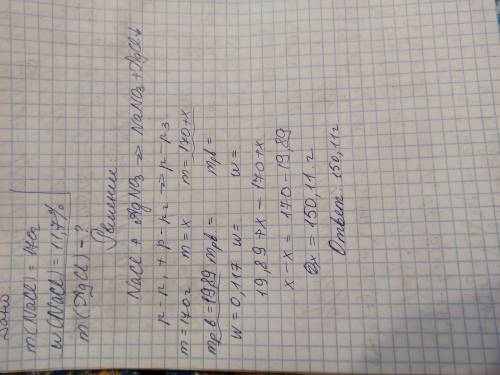 Дано
m(NaCl) = 170г
w(NaCl) = 11,7%
m(AgCl) - ?
Решение.
NaCl + AgNO3 => NaNO3 + AgCl↓
р-р1 + р-р2 => р-р3
m=170г m=x m=170+x
mрв=19,89 mрв= mрв=
w=0,117 w= w=
19,89+x=170+x
x-x = 170-19,89
0x = 150,11 г
Ответ: 150,11г